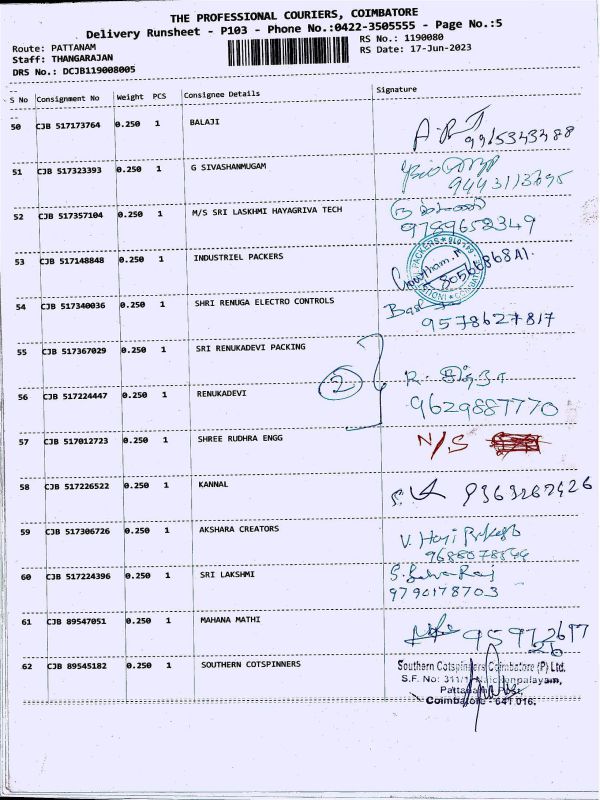 THE PROFESSIONAL COURIERS, COIMBATORE
Delivery Runsheet - P103 - Phone No.:0422-3505555 - Page No.:5
Route: PATTANAM
RS No.: 1190080
Staff: THANGARAJAN
RS Date: 17-Jun-2023
DRS No.: DCJB119008005
S No Consignment No Weight PCS Consignee Details Signature
50 CJB 517173764 0.250 1 BALAJI
51 CJB 517323393 0.250 1 G SIVASHANMUGAM
52 CJB 517357104 0.250 1 M/S SRI LASKHMI HAYAGRIVA TECH
9789652349
53 CJB 517148848 0.250 1 INDUSTRIEL PACKERS
54 CJB 517340036 0.250 1 SHRI RENUGA ELECTRO CONTROLS
9578627817
55 CJB 517367029 0.250 1 SRI RENUKADEVI PACKING
2
56 CJB 517224447 0.250 1 RENUKADEVI
9629887770
57 CJB 517012723 0.250 1 SHREE RUDHRA ENGG N/S
58 CJB 517226522 0.250 1 KANNAL
59 CJB 517306726 0.250 1 AKSHARA CREATORS
60 CJB 517224396 0.250 1 SRI LAKSHMI
9790178703
61 CJB 89547051 0.250 1 MAHANA MATHI
62 CJB 89545182 0.250 1 SOUTHERN COTSPINNERS Southern Cotspinners Coimbatore (P) Ltd.
S.F. No: 311/1
Coimbatore - 641 016.